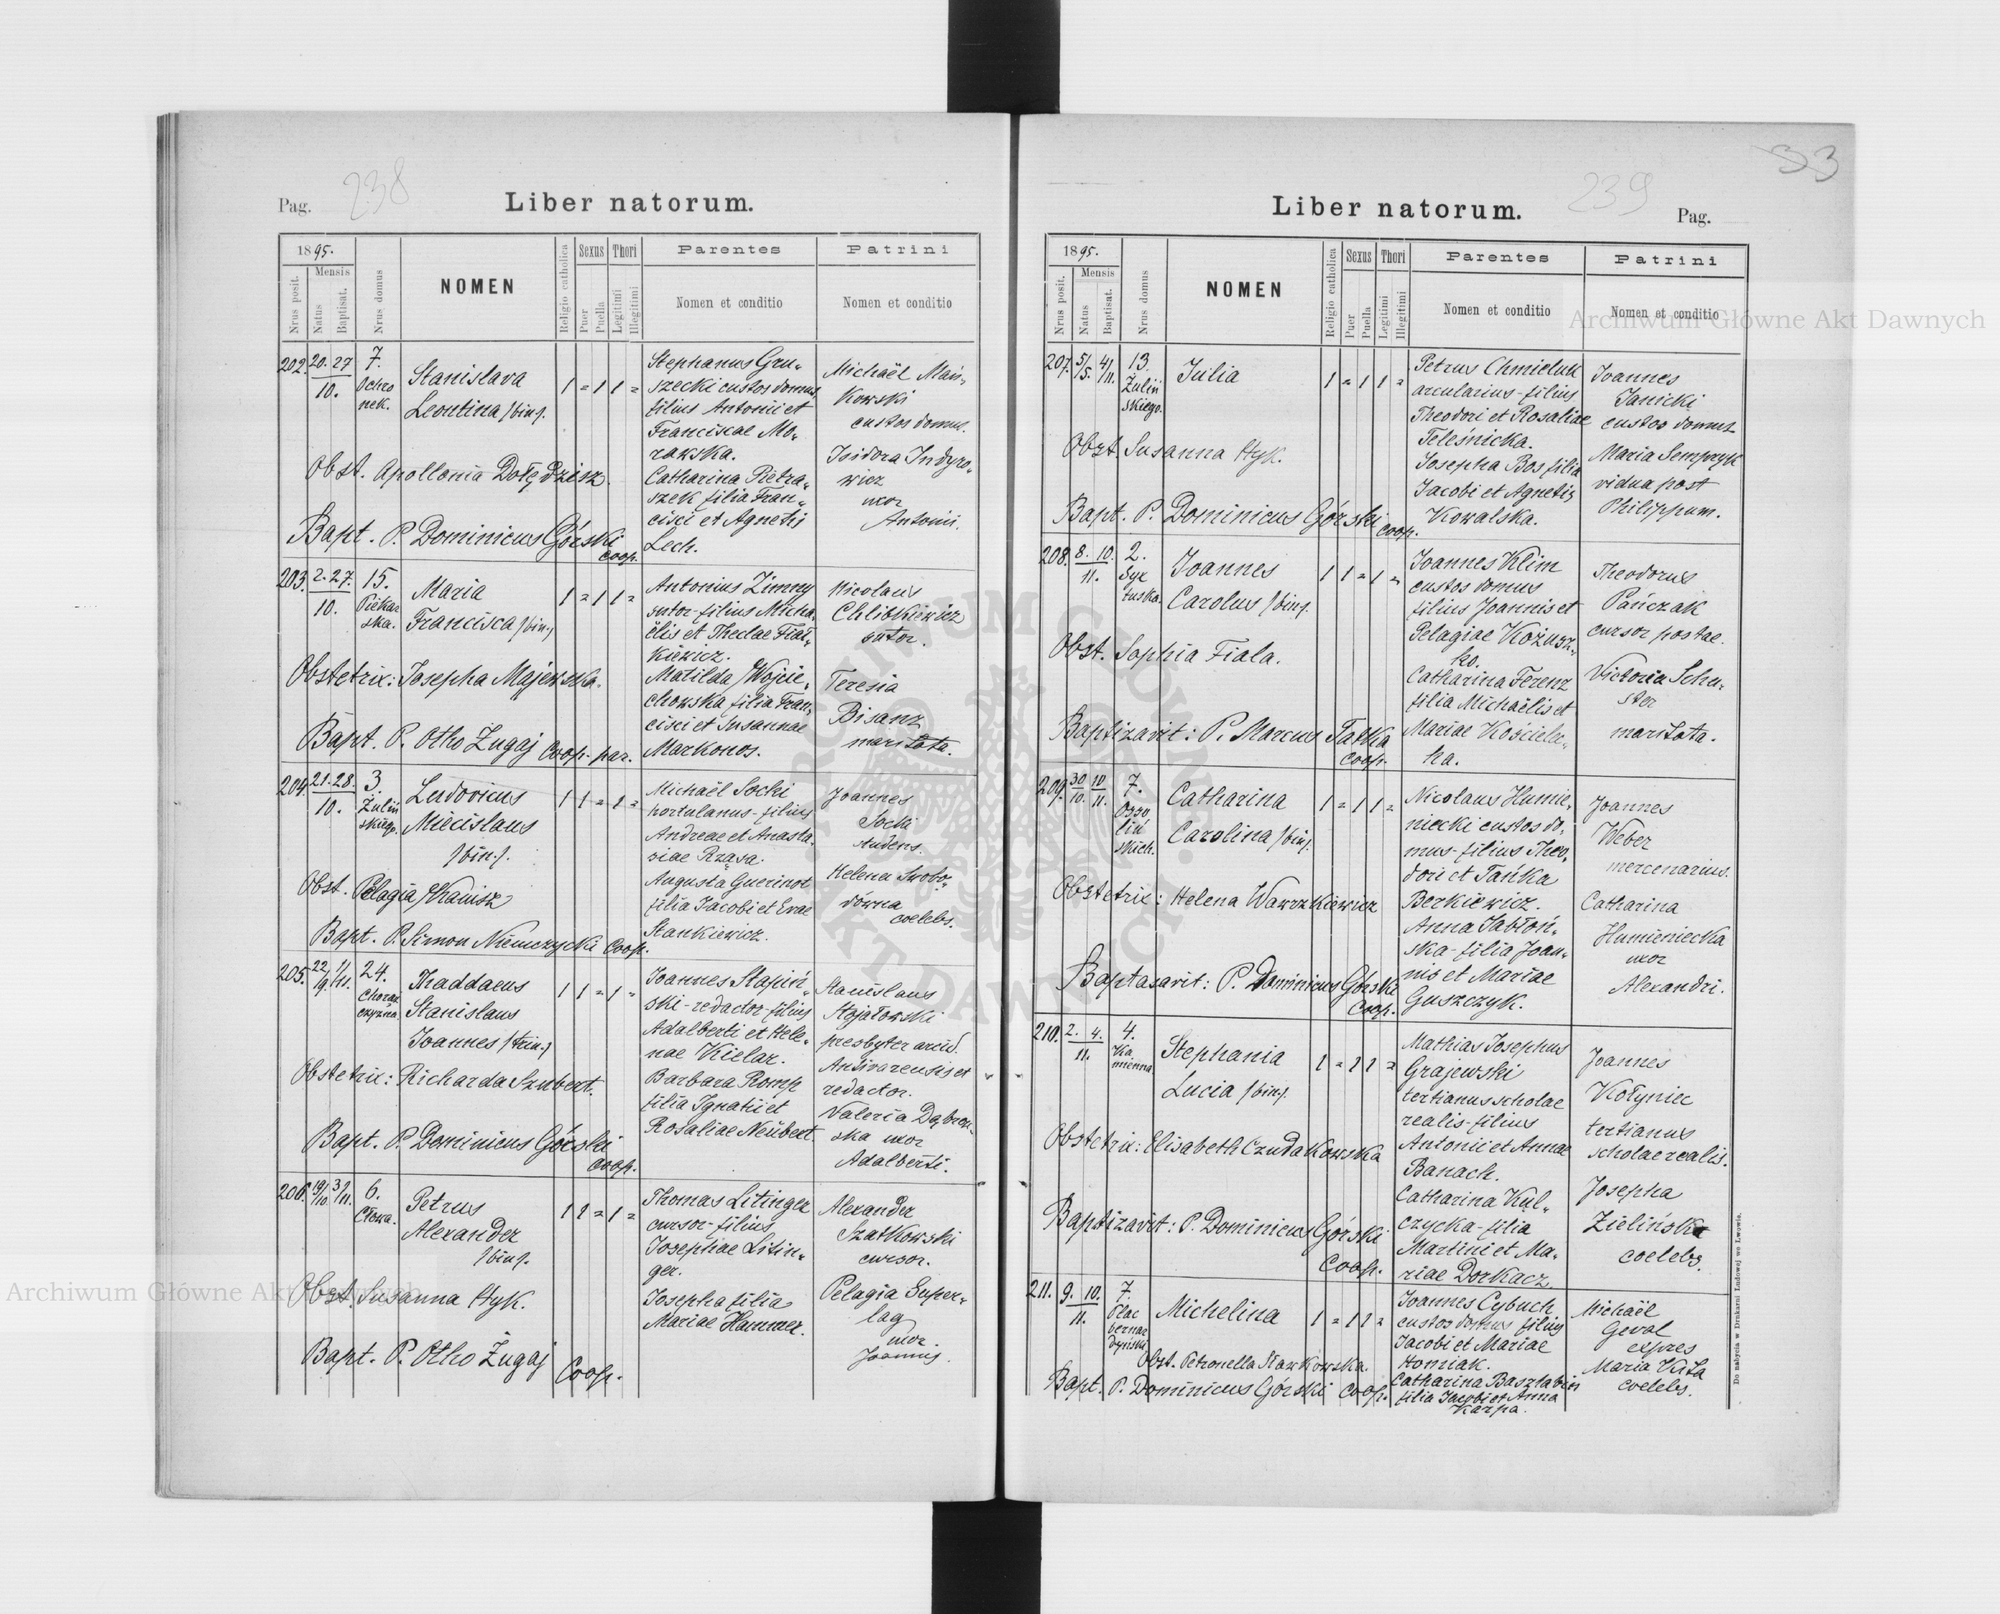 Pag. 238
Liber natorum.
1895.
Nrus posit.
Mensis
Natus
Baptisat.
Nrus domus
NOMEN
Religio catholica
Sexus
Puer
Puella
Thori
Legitimi
Illegitimi
Parentes
Nomen et conditio
Patrini
Nomen et conditio
202.
20. 27
10.
7.
Ochro
nek.
Stanislava
Leontina /bin/.
1 = 1 1 =
Stephanus Gru-
szecki custos domus
filius Antonii et
Franciscae Mo-
rawska.
Catharina Pietra-
szek filia Fran-
cisci et Agnetis
Lech.
Michaël Mań-
kowski
custos domus.
Isidora Indyro-
wicz
uxor
Antonii.
Obst. Apollonia Dołędzisz.
Bapt. P. Dominicus Górski
coop.
203.
2. 27.
10.
15.
Piekar
ska.
Maria
Francisca /bin./
1 = 1 1 =
Antonius Zimny
sutor-filius Micha-
ëlis et Theclae Fiał-
kiewicz.
Matilda Wojcie-
chowska filia Fran-
cisci et Susannae
Markonos.
Nicolaus
Chlibkiewicz
sutor.
Teresia
Bisanz
maritata.
Obstetrix: Josepha Majewska.
Bapt. P. Otho Żugaj Coop. par.
204.
21. 28.
10.
3.
Żuliń
skiego.
Ludovicus
Miecislaus
/bin./.
1 1 = 1 =
Michaël Socki
hortulanus-filius
Andreae et Anasta-
siae Rząsa.
Augusta Guerinot
filia Jacobi et Evae
Stankiewicz.
Joannes
Socki
studens.
Helena Swobo-
dówna
coelebs.
Obst. Pelagia Kanisz
Bapt. P. Simon Niemczycki Coop.
205.
22/9. 1/11.
24.
Chorąż
czyzna.
Thaddaeus
Stanislaus
Joannes /trin./
1 1 = 1 =
Joannes Stapiń-
ski-redactor-filius
Adalberti et Hele-
nae Kielar.
Barbara Romp
filia Ignatii et
Rosaliae Neübert.
Stanislaus
Stojałowski
presbyter arcid.
Antivarensis et
redactor.
Valeria Dąbrow-
ska uxor
Adalberti.
Obstetrix: Richarda Szubert.
Bapt. P. Dominicus Górski
coop.
206.
19/10. 3/11.
6.
Cłowa.
Petrus
Alexander
/bin/.
1 1 = 1 =
Thomas Litinger
cursor-filius
Josephae Litin-
ger.
Josepha filia
Mariae Hammer.
Alexander
Szatkowski
cursor.
Pelagia Super-
lag
uxor
Joannis.
Obst. Susanna Hyk.
Bapt. P. Otho Żugaj Coop.
33
239
Liber natorum.
Pag.
1895.
Nrus posit.
Mensis
Natus
Baptisat.
Nrus domus
NOMEN
Religio catholica
Sexus
Puer
Puella
Thori
Legitimi
Illegitimi
Parentes
Nomen et conditio
Patrini
Nomen et conditio
207.
5/5. 4/11.
13.
Żuliń
skiego.
Julia
1 = 1 1 =
Petrus Chmieluk
arcularius-filius
Theodori et Rosaliae
Teleśnicka.
Josepha Bos filia
Jacobi et Agnetis
Kowalska.
Joannes
Janicki
custos domus
Maria Sempryk
vidua post
Philippum.
Obst. Susanna Hyk.
Bapt. P. Dominicus Górski coop.
208.
8. 10.
11.
2.
Syx
tuska.
Joannes
Carolus /bin/.
1 1 = 1 =
Joannes Klim
custos domus
filius Joannis et
Pelagiae Kożusz-
ko.
Catharina Ferenz
filia Michaëlis et
Mariae Kościele-
ka.
Theodorus
Pańczak
cursor postae.
Victoria Schu-
ster
maritata.
Obst. Sophia Fiala.
Baptizavit: P. Marcus Tatka
Coop.
209.
30/10. 10/11.
7.
Osso
liń
skich.
Catharina
Carolina /bin/.
1 = 1 1 =
Nicolaus Humie-
niecki custos do-
mus-filius Theo-
dori et Tańka
Berkiewicz.
Anna Jabłoń-
ska-filia Joan-
nis et Mariae
Guszczyk.
Joannes
Weber
mercenarius.
Catharina
Humieniecka
uxor
Alexandri.
Obstetrix: Helena Wawrzkiewicz
Baptasavit: P. Dominicus Górski
Coop.
210.
2. 4.
11.
4.
Ka
mienna
Stephania
Lucia /bin/.
1 = 1 1 =
Mathias Josephus
Grajewski
tertianus scholae
realis-filius
Antonii et Annae
Banach.
Catharina Kul-
czycka-filia
Martini et Ma-
riae Dorkacz.
Joannes
Kołyniec
tertianus
scholae realis.
Josepha
Zielińska
coelebs.
Obstetrix: Elisabeth Czudakowska
Baptizavit: P. Dominicus Górski
Coop.
211.
9. 10.
11.
7.
Plac
bernar
dyński
Michelina
1 = 1 1 =
Joannes Cybuch
custos domus filius
Jacobi et Mariae
Homiak.
Catharina Basztabin
filia Jacobi et Anna
Karpa.
Michaël
Geval
expres
Maria Kita
coelebs.
Obst. Petronella Nawkowska.
Bapt. P. Dominicus Górski Coop.
Do nabycia w Drukarni Ludowej we Lwowie.
Archiwum Główne Akt Dawnych
Archiwum Główne Akt Dawnych
ARCHIWUM GŁÓWNE AKT DAWNYCH